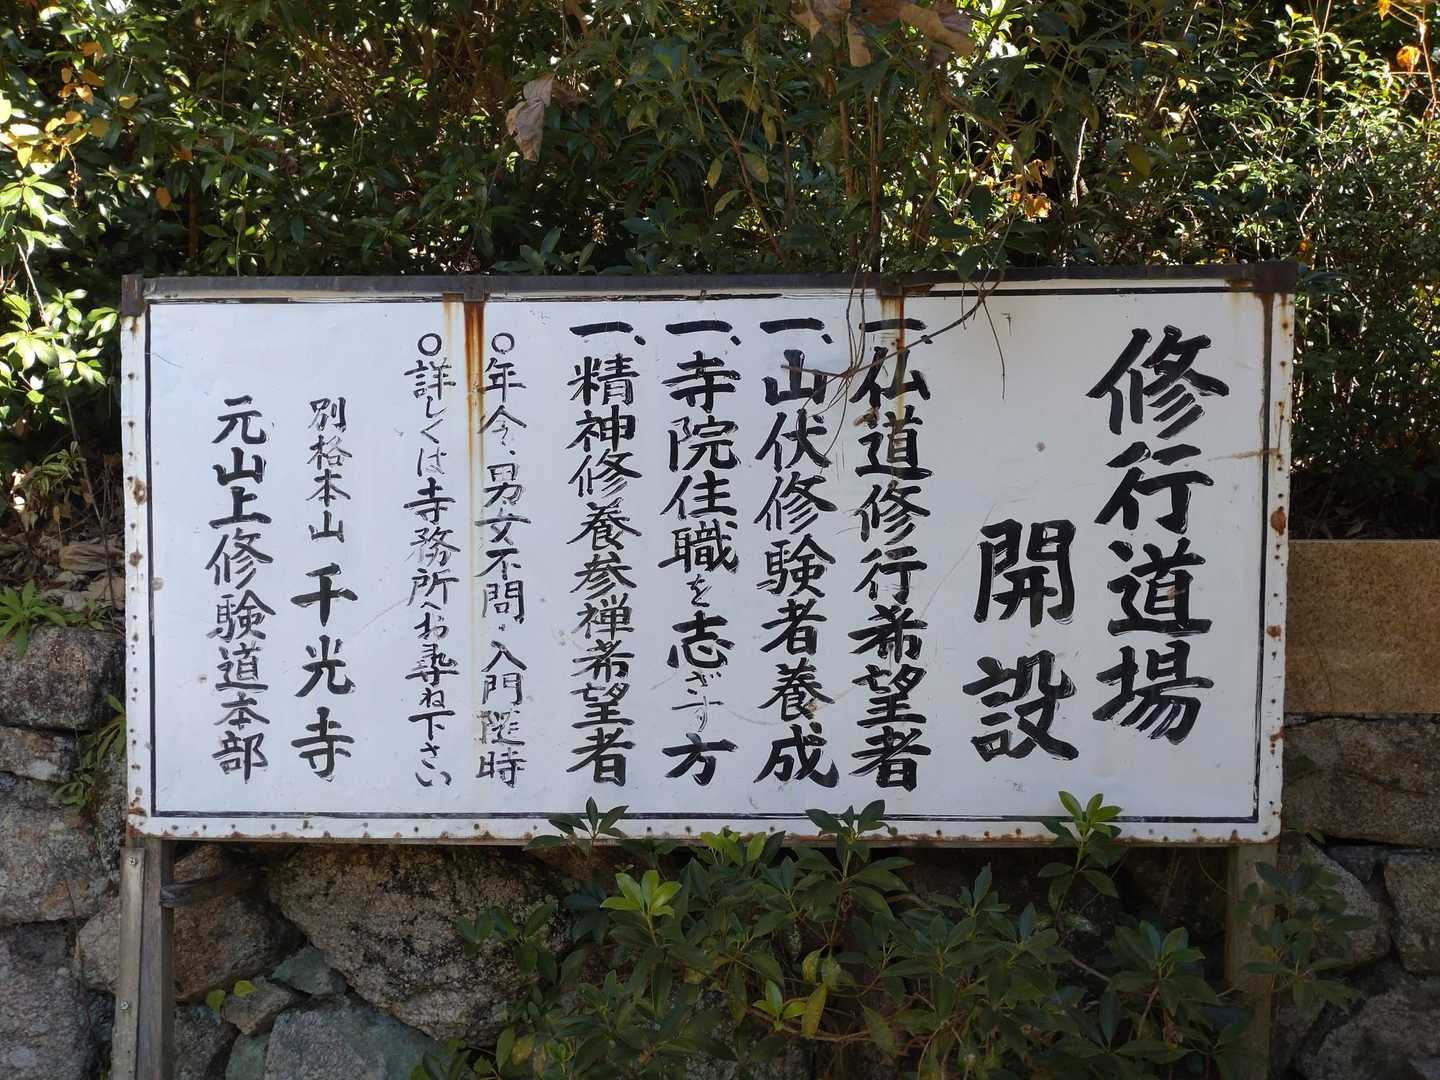 修行道場
開設
一、仏道修行希望者
一、山伏修験者養成
一、寺院住職を志ざす方
一、精神修養参禅希望者
○年令、男女不問・入門随時
○詳しくは寺務所へお尋ね下さい
別格本山 千光寺
元山上修験道本部